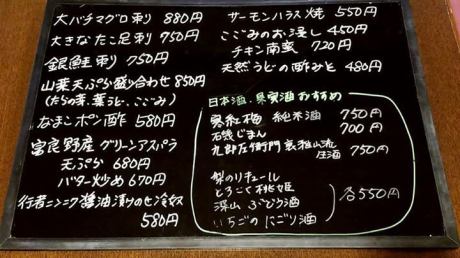 大バチマグロ刺 880円
大きなたこ足刺 750円
銀鮭刺 750円
山菜天ぷら盛り合わせ 850円
(たらの芽、葉うど、こごみ)
なまこポン酢 580円
富良野産グリーンアスパラ
天ぷら 680円
バター炒め 670円
行者ニンニク醤油漬けのせ冷奴
580円
サーモンハラス焼 550円
こごみのお浸し 450円
チキン南蛮 720円
天然うどの酢みそ 480円
日本酒・果実酒おすすめ
純米酒 750円
石鎚 700円
九郎左衛門 裏雅山流
生酒 750円
梨のリキュール
とろこく桃姫
深山 ぶどう酒
いちごのにごり酒
各550円